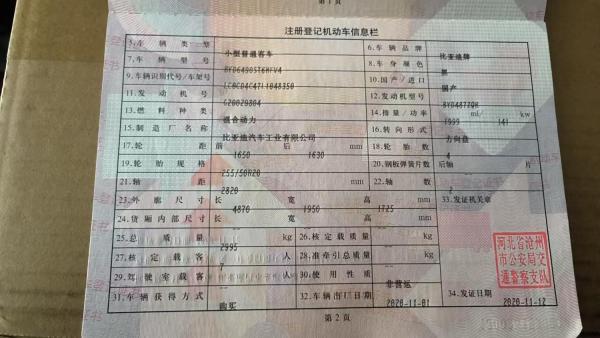 第1页
注册登记机动车信息栏
5.车辆类型 小型普通客车 6.车辆品牌 比亚迪牌
7.车辆型号 BYD6490ST6HEV4 8.车身颜色 黑
9.车辆识别代号/车架号 LC0CD4C47L1048350 10.国产/进口 国产
11.发动机号 G20029804 12.发动机型号 BYD487ZQB
13.燃料种类 混合动力 14.排量/功率 1999 ml/ 141 kw
15.制造厂名称 比亚迪汽车工业有限公司 16.转向形式 方向盘
17.轮距 前 1650 后 1630 mm 18.轮胎数 4
19.轮胎规格 255/50R20 20.钢板弹簧片数 后轴 片
21.轴距 2820 mm 22.轴数 2
23.外廓尺寸 长 4870 宽 1950 高 1725 mm 33.发证机关章
24.货厢内部尺寸 长 宽 高 mm
25.总质量 2995 kg 26.核定载质量 kg
27.核定载客 人 28.准牵引总质量 kg
29.驾驶室载客 人 30.使用性质 非营运
31.车辆获得方式 购买 32.车辆出厂日期 2020-11-01 34.发证日期 2020-11-12
河北省沧州
市公安局交
通警察支队
第2页